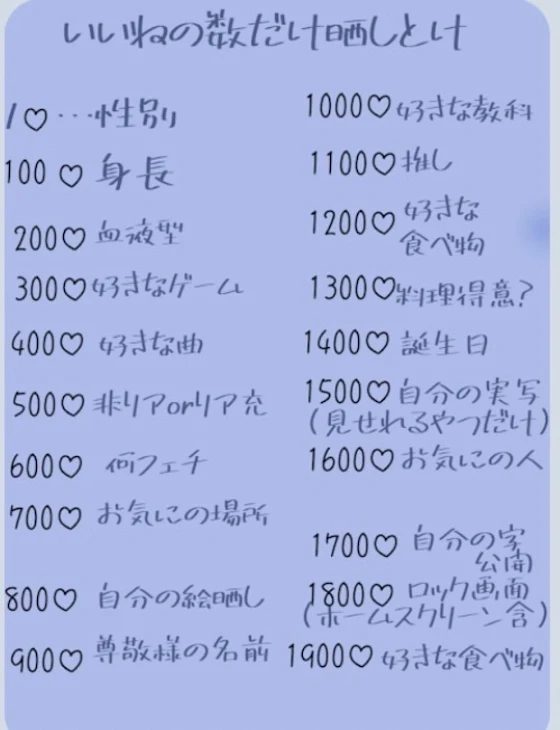 いいねの数だけ晒しとけ
1♡…性別
100♡ 身長
200♡ 血液型
300♡ 好きなゲーム
400♡ 好きな曲
500♡ 非リアorリア充
600♡ 何フェチ
700♡ お気にの場所
800♡ 自分の絵晒し
900♡ 尊敬様の名前
1000♡ 好きな教科
1100♡ 推し
1200♡ 好きな
食べ物
1300♡ 料理得意?
1400♡ 誕生日
1500♡ 自分の実写
(見せれるやつだけ)
1600♡ お気にの人
1700♡ 自分の字
公開
1800♡ ロック画面
(ホームスクリーン含)
1900♡ 好きな食べ物